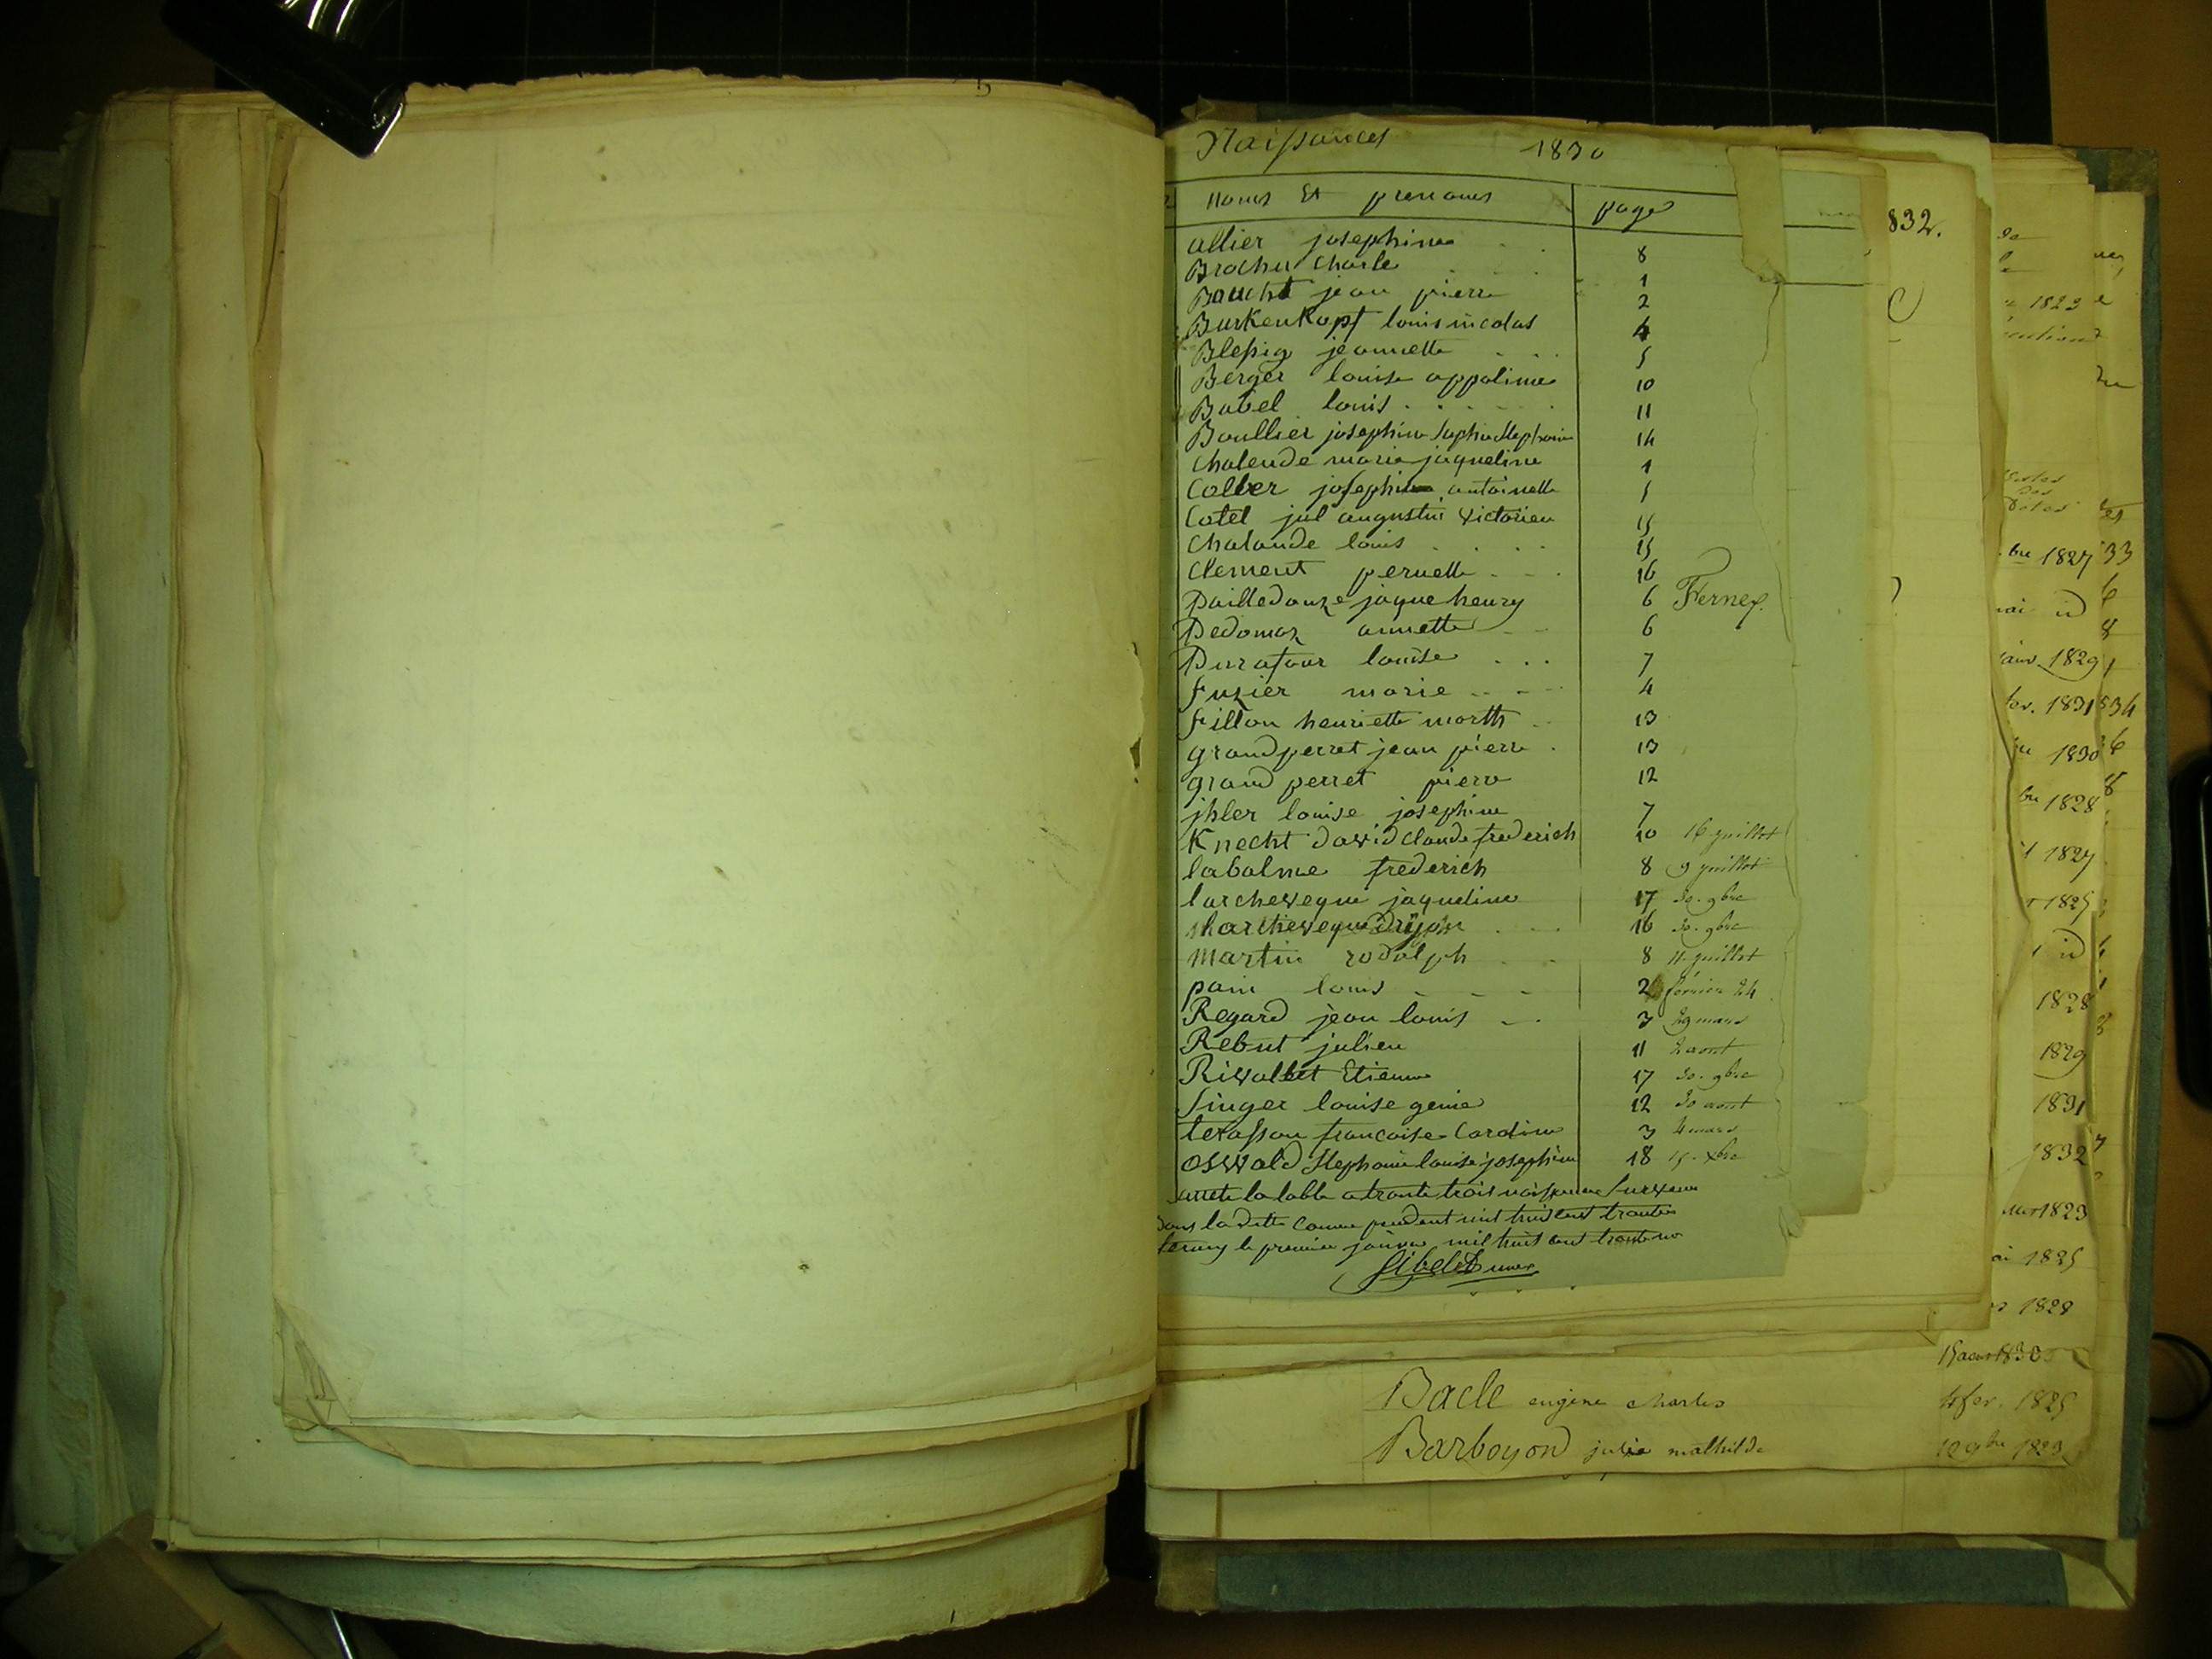 Naissances 1830
Noms Et prenoms page
allier josephine 8
Brochu charle 1
Baucht jean pierre 2
Burkenkopf louis nicolas 4
Blessig jeannette 5
Berger louise appoline 10
Babel louis 11
Boullier josephine Sophie Stephanie 14
Chalende marie jaqueline 1
Coller josephine antoinette 5
Cotel jul augustin victorien 15
Chalande louis 15
Clement pernette 16
Dailledouze jaque henry 6 Fernex.
Dedomaz annette 6
Durafour louise 7
fuzier marie 4
fillon henriette marth 13
grandperret jean pierre 13
grand perret pierre 12
jhler louise josephine 7
Knecht david claude frederich 10 16 juillet
labalme frederich 8 9 juillet
larcheveque jaqueline 17 30. 9bre
16 30. 9bre
Martin rodolph 8 11 juillet
pain louis 2 février 24
Regard jean louis 3 29 mars
Rebut julien 11 2 aout
Rivollet Etienne 17 30. 9bre
Singer louise genie 12 30 aout
terasson francoise Cardine 3 4 mars
oswald Stephanie louise josephine 18 15. Xbre
arrete la table a trante trois naissance Survenu
dans la ditte Comune pendent mil huit cent trante
le premier janvier mil huit cent trante un
832.
1823
1827 33
id 6
8
1829
fev. 1831 34
1830 6
bre 1828 8
1827
1825
id
1828
1829
1831
1832
1823
1825
1828
15 aout 1830
Bacle eugène charles 4 fev. 1825
Barboyon julie mathilde 12 9bre 1823